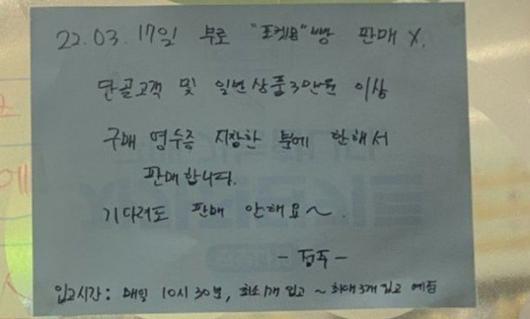 22.03.17일 부로 "포켓몬"빵 판매 X.
단골고객 및 일반상품 3만원 이상
구매 영수증 지참한 분에 한해서
판매합니다.
기다려도 판매 안해요~.
- 점주 -
입고시간: 매일 10시 30분, 최소 1개 입고 ~ 최대 3개 입고 예정